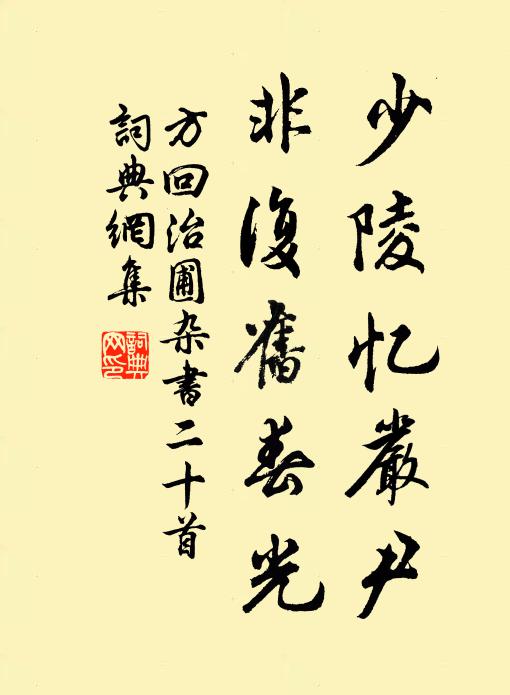 少陵忆嚴尹
非復舊春光
方回治圃杂書二十首
詞典網集
詞典
网印